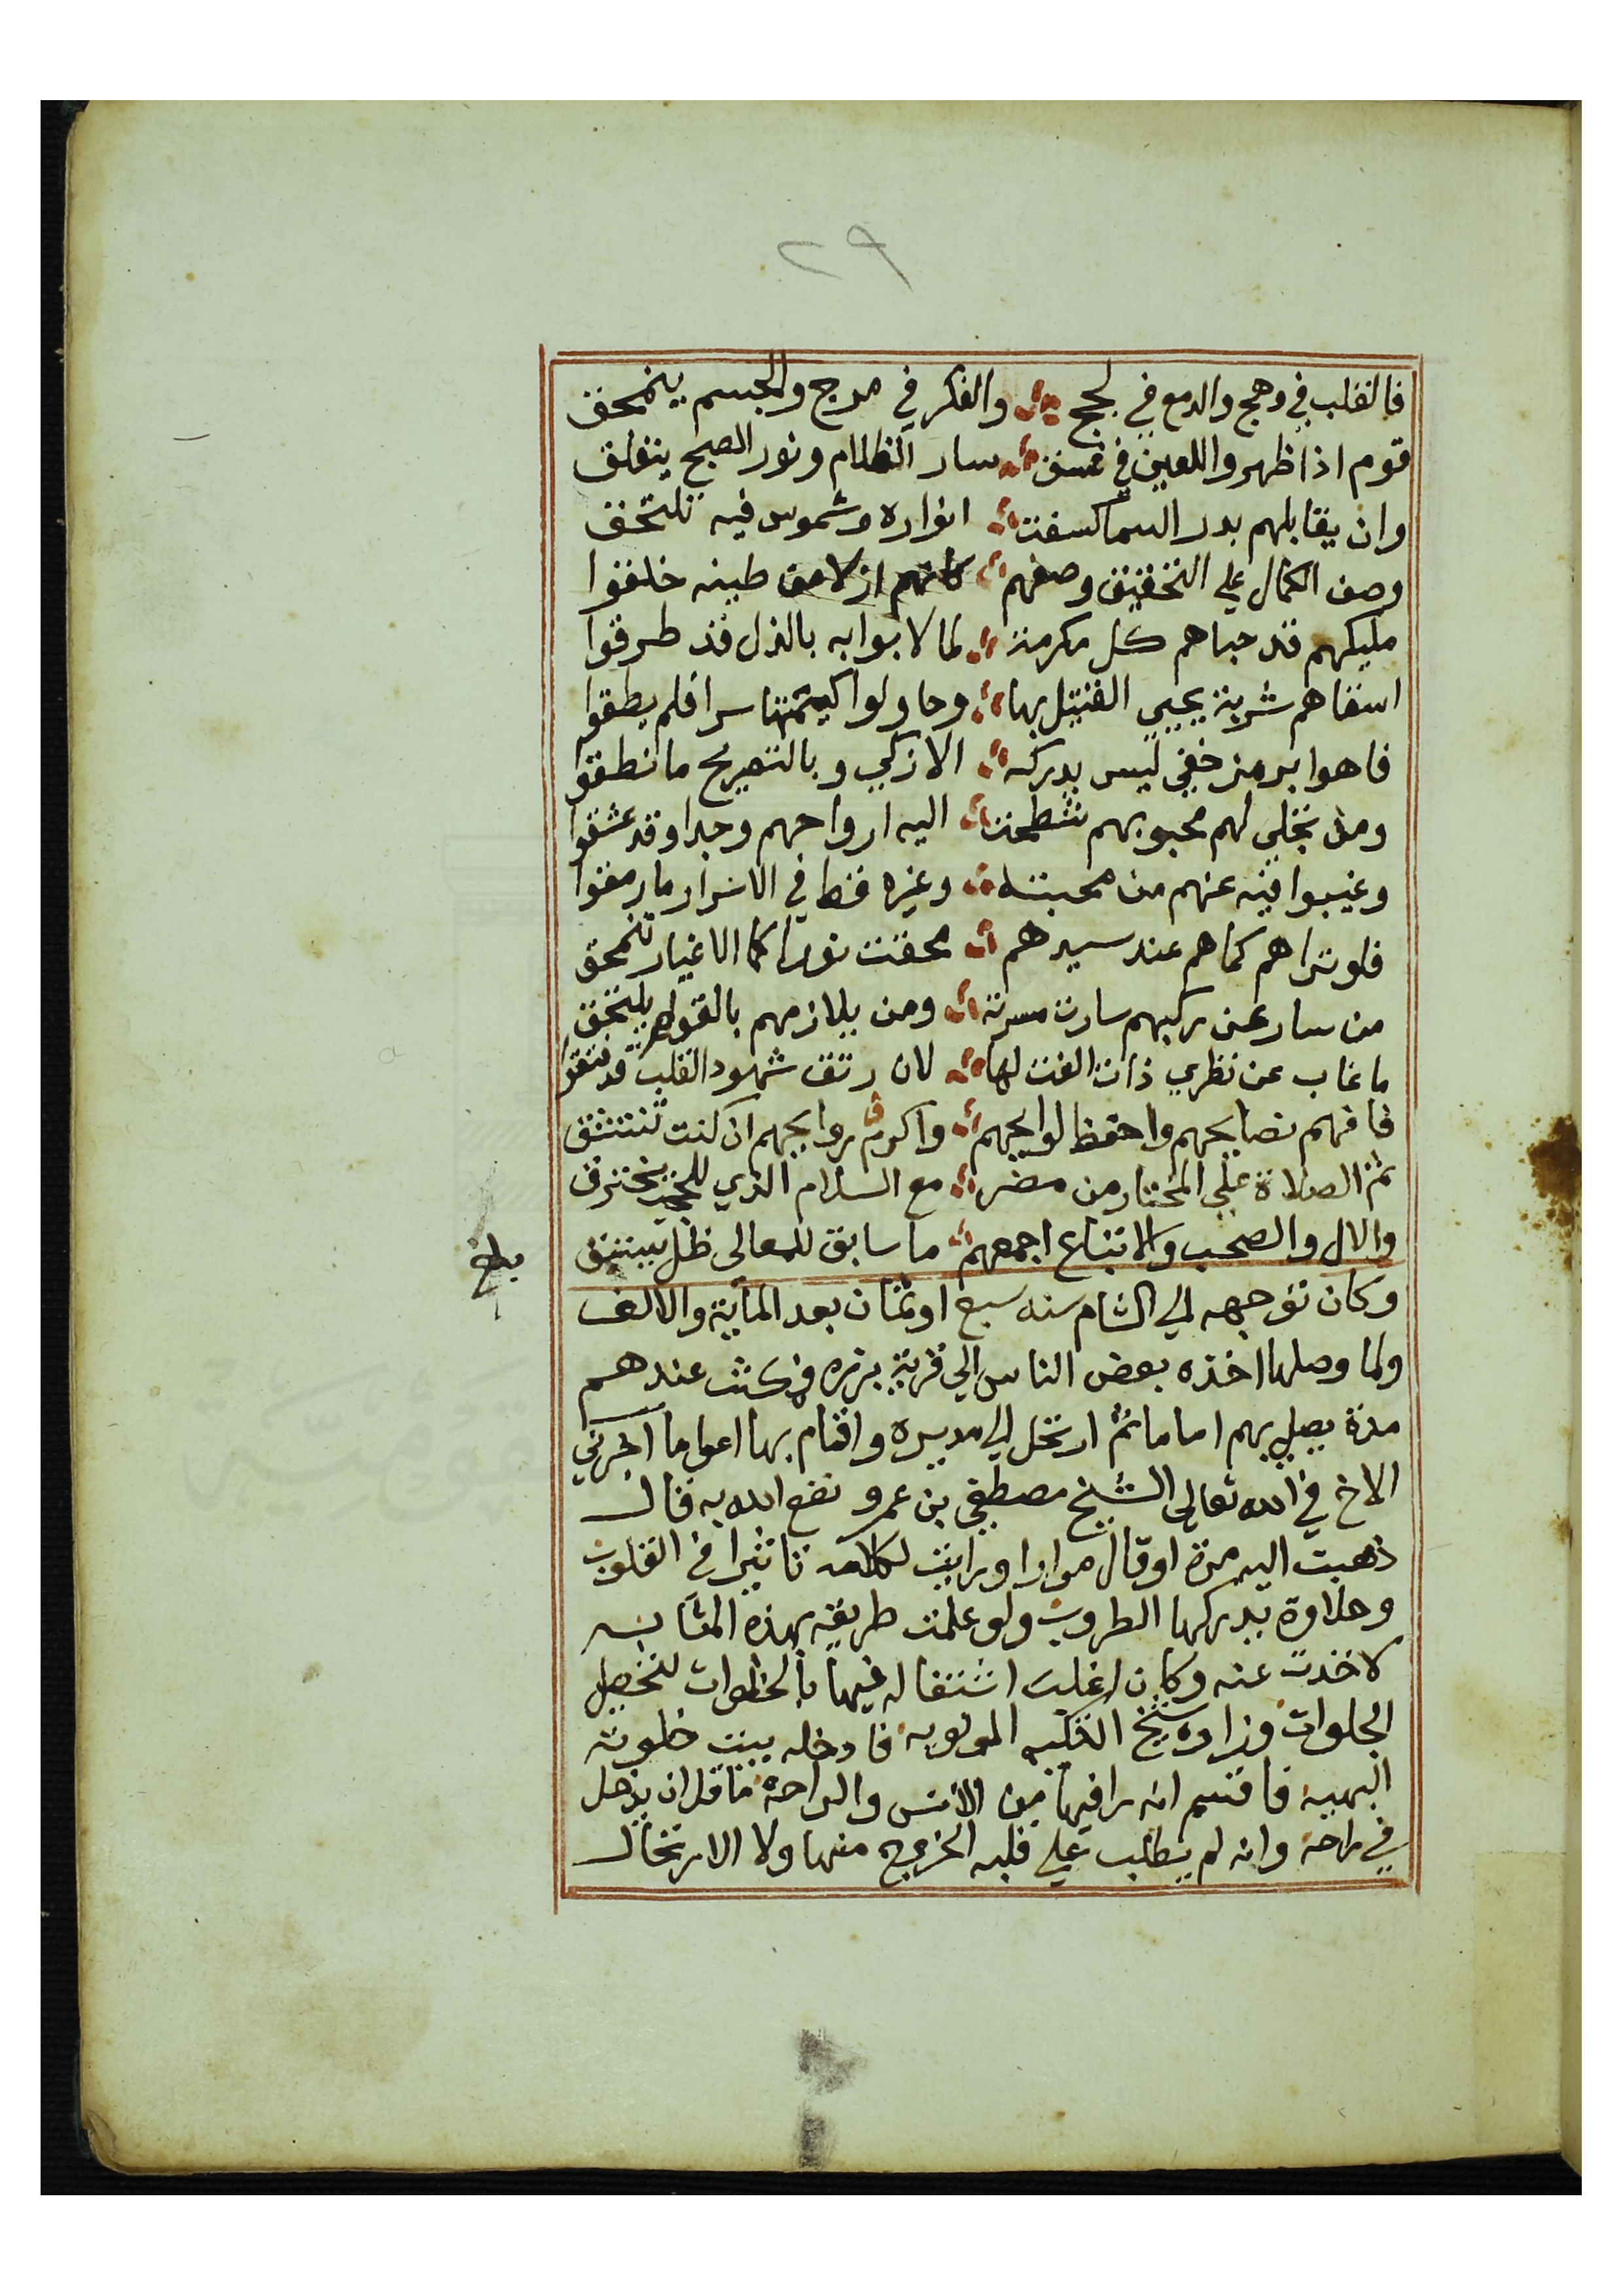 ٢٩
فالقلب في وهج والدمع في لجج والفكر في مرج والجسم ينمحق
قوم اذا ظهروا للعين في غسق سار الظلام ونور الصبح ينفلق
وان يقابلهم بدر السما كسفت انواره وشموس فيه تلتحق
وصف الكمال على التحقيق وصفهم كانهم ازلا من طينه خلقوا
مليكهم قد حباهم كل مكرمة لما لابوابه بالذل قد طرقوا
اسقاهم شربة يحيى القتيل بها وحاولوا كتمها سرا فلم يطقوا
فاهوا برمز خفي ليس يدركه الا زكي وبالتصريح ما نطقوا
ومن تجلى لهم محبوبهم شطحت اليه ارواحهم وجدا وقد عشقوا
وغيبوا فيه عنهم من محبته وغيره قط في الاسرار ما رمقوا
فلو تراهم كما هم عند سيدهم محقت نورا كما الاغيار تنمحق
من سار عن ركبهم سارت مسرته ومن يلازمهم بالقوم يلتحق
ما غاب عن نظري ذات الفت لها لان رتق شهود القلب قد فتقوا
فافهم نصايحهم واحفظ لوايحهم واكرم روايحهم ان كنت تنتشق
ثم الصلاة على المختار من مضر مع السلام الذي للحجب يخترق
والال والصحب والاتباع اجمعهم ما سابق للمعالي ظل يستبق
بلغ
وكان توجهه الي الشام سنه سبع او ثمان بعد الماية والالف
ولما وصلها اخذه بعض الناس الي قرية برزه فمكث عندهم
مدة يصلي بهم اماما ثم ارتحل الي مديره واقام بها اعواما اخبرني
الاخ في الله تعالى الشيخ مصطفى بن عمرو نفع الله به قال
ذهبت اليه مرة او قال مرارا ورايت لكلامه تاثيرا في القلوب
وحلاوة يدركها الطروب ولو علمت طريقه بهذه المثابه
لاخذت عنه وكان اغلب اشتغاله فيها بالخلوات لتحصيل
الجلوات وزاره شيخ التكيه المولويه فادخله بيت خلوته
البهيه فاقسم انه راى فيها من الانس والراحة ما قل ان يدخل
في راحة وانه لم يطلب على قلبه الخروج منها ولا الارتحال